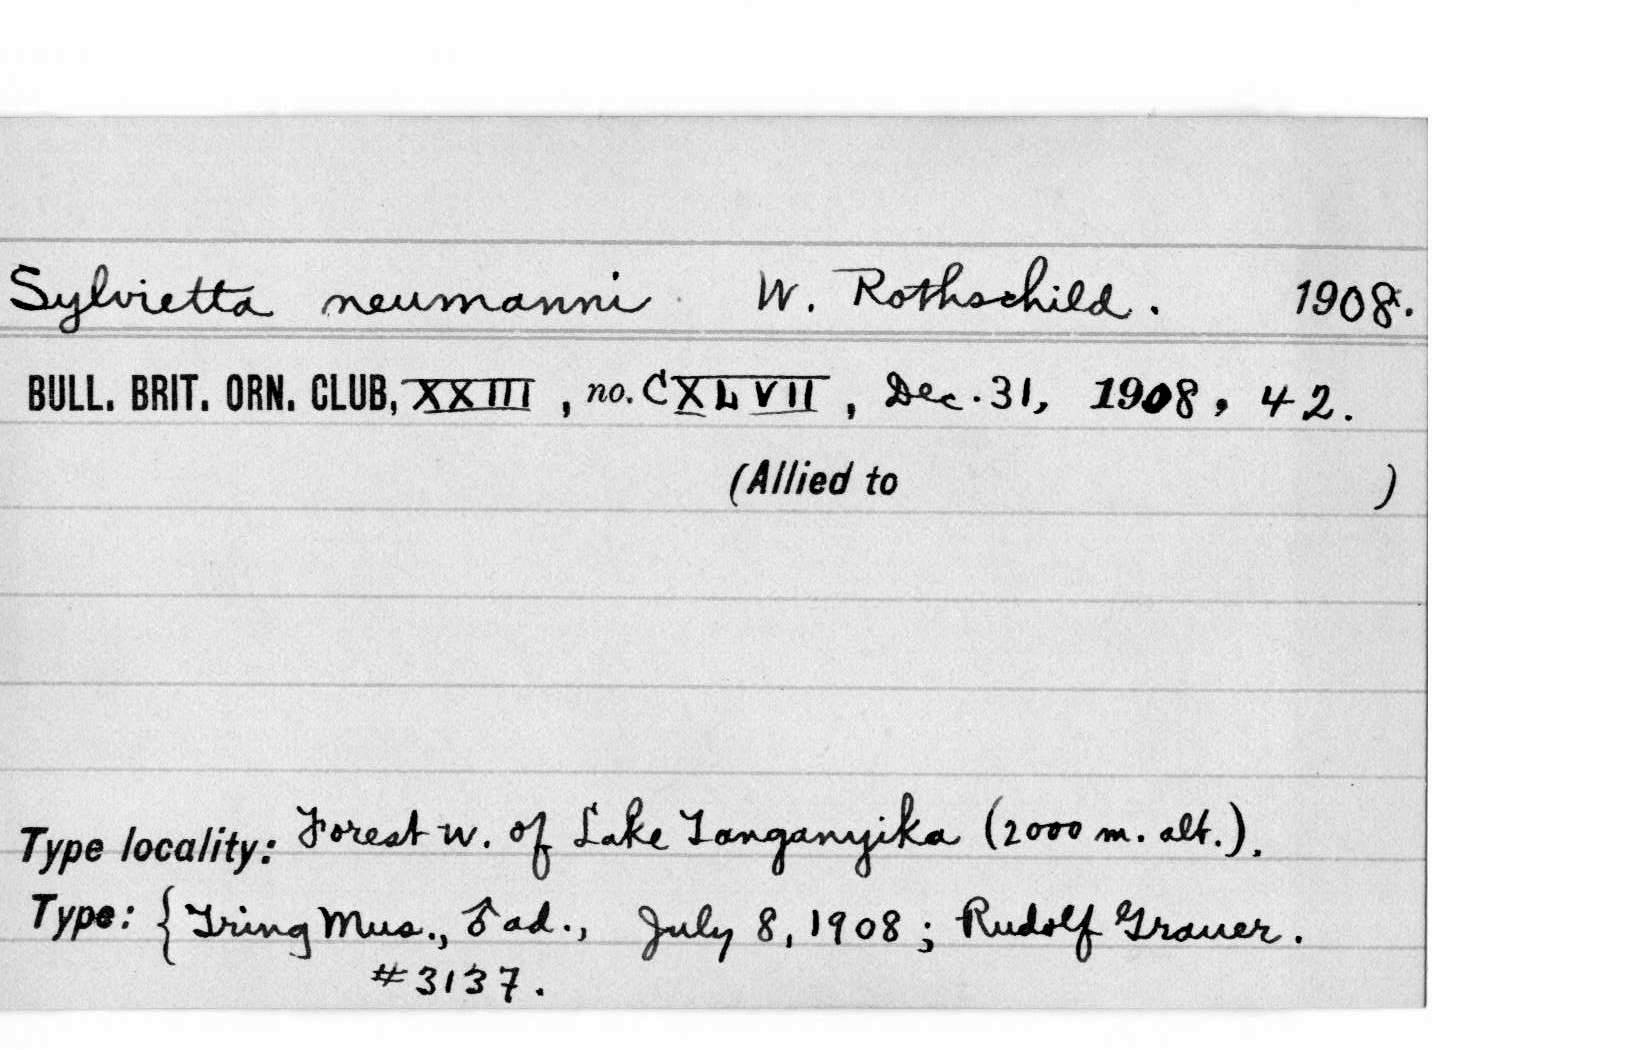 Sylvietta neumanni W. Rothschild. 1908.
BULL. BRIT. ORN. CLUB, XXIII, no. CXLVII, Dec. 31, 1908, 42.
(Allied to )
Type locality: Forest w. of Lake Tanganyika (2000 m. alt.).
Type: { Tring Mus., ♂ ad., July 8, 1908; Rudolf Grauer.
#3137.